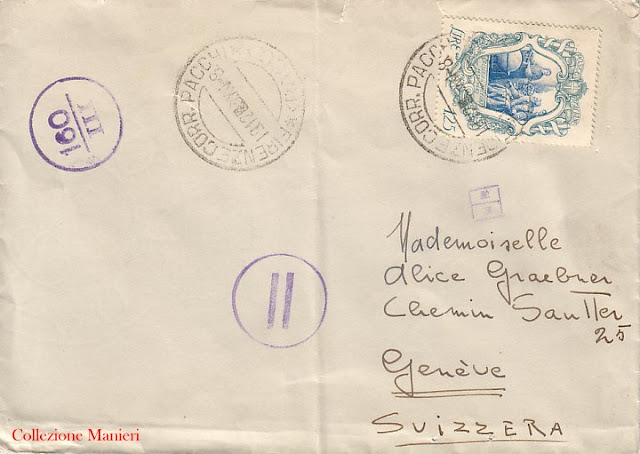 LIRE
1,25
FIRENZE CORR. PACCHI
160
III
FIRENZE CORR. PACCHI
II
Mademoiselle
Alice Graebner
Chemin Sautter
25
Genève
SVIZZERA
Collezione Manieri